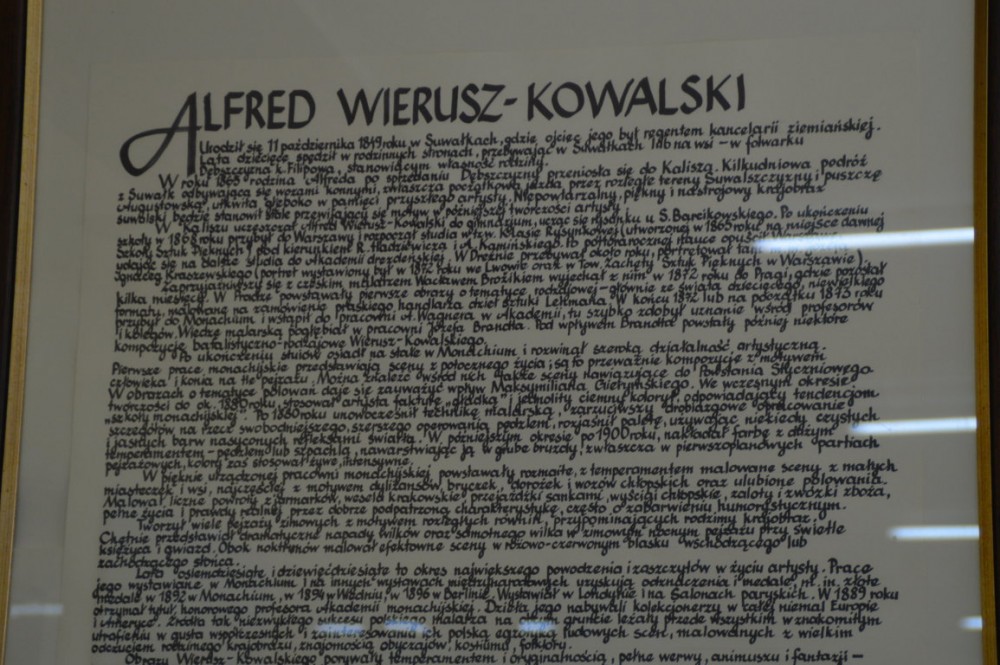 ALFRED WIERUSZ-KOWALSKI
Urodził się 11 października 1849 roku w Suwałkach, gdzie ojciec jego był regentem kancelarii ziemiańskiej.
Lata dziecięce spędził w rodzinnych stronach, przebywając w Suwałkach lub na wsi – w folwarku
Dębszczyzna k. Filipowa, stanowiącym własność rodziny.
W roku 1865 rodzina Alfreda po sprzedaniu Dębszczyzny przeniosła się do Kalisza. Kilkudniowa podróż
z Suwałk odbywająca się wozami konnymi, zwłaszcza początkowa jazda przez rozległe tereny Suwalszczyzny i puszczę
Augustowską, utkwiła głęboko w pamięci przyszłego artysty. Niepowtarzalny, piękny i nastrojowy krajobraz
suwalski będzie stanowił stale przewijający się motyw w późniejszej twórczości artysty.
W Kaliszu uczęszczał Alfred Wierusz-Kowalski do gimnazjum, ucząc się rysunku u S. Barcikowskiego. Po ukończeniu
szkoły w 1868 roku przybył do Warszawy i rozpoczął studia w tzw. Klasie Rysunkowej (utworzonej w 1865 roku na miejsce dawnej
Szkoły Sztuk Pięknych) pod kierunkiem R. Hadziewicza i A. Kamińskiego. Po półtorarocznej nauce opuścił
udając się na dalsze studia do Akademii drezdeńskiej. W Dreźnie przebywał około roku, portretował tam
Ignacego Kraszewskiego (portret wystawiony był w 1872 roku we Lwowie oraz w Tow. Zachęty Sztuk Pięknych w Warszawie).
Zaprzyjaźniwszy się z czeskim malarzem Wacławem Brożikiem wyjechał z nim w 1872 roku do Pragi, gdzie pozostał
kilka miesięcy. W Pradze powstawały pierwsze obrazy o tematyce rodzajowej – głównie ze świata dziecięcego, niewielkiego
formatu, malowane na zamówienie praskiego handlarza dzieł sztuki Lehmana. W końcu 1872 lub na początku 1873 roku
przybył do Monachium i wstąpił do pracowni A. Wagnera w Akademii, tu szybko zdobył uznanie wśród profesorów
i kolegów. Wiedzę malarską pogłębiał w pracowni Józefa Brandta. Pod wpływem Brandta powstały później niektóre
kompozycje batalistyczno-rodzajowe Wierusz-Kowalskiego.
Po ukończeniu studiów osiadł na stałe w Monachium i rozwinął szeroką działalność artystyczną.
Pierwsze prace monachijskie przedstawiają sceny z potocznego życia; są to przeważnie kompozycje z motywem
człowieka i konia na tle pejzażu. Można znaleźć wśród nich także sceny nawiązujące do Powstania Styczniowego.
W obrazach o tematyce polowań daje się zauważyć wpływ Maksymiliana Gierymskiego. We wczesnym okresie
twórczości do ok. 1880 roku, stosował artysta fakturę „gładką" i jednolity ciemny koloryt, odpowiadający tendencjom
„szkoły monachijskiej". Po 1880 roku unowocześnił technikę malarską, zarzuciwszy drobiazgowe opracowanie
szczegółów na rzecz swobodniejszego, szerszego operowania pędzlem, rozjaśnił paletę, używając niekiedy czystych
i jasnych barw nasyconych refleksami światła. W późniejszym okresie, po 1900 roku, nakładał farbę z dużym
temperamentem – pędzlem lub szpachlą, nawarstwiając ją w grube bruzdy, zwłaszcza w pierwszoplanowych partiach
pejzażowych, kolory zaś stosował żywe, intensywne.
W pięknie urządzonej pracowni monachijskiej powstawały rozmaite, z temperamentem malowane sceny z małych
miasteczek i wsi, najczęściej z motywem dyliżansów, bryczek, dorożek i wozów chłopskich oraz ulubione polowania.
Malował liczne powroty z jarmarków, wesela krakowskie, przejażdżki sankami, wyścigi chłopskie, zaloty i zwózki zboża,
pełne życia i prawdy realnej przez dobrze podpatrzoną charakterystykę, często o zabarwieniu humorystycznym.
Tworzył wiele pejzaży zimowych z motywem rozległych równin, przypominających rodzimy krajobraz.
Chętnie przedstawiał dramatyczne napady wilków oraz samotnego wilka w zimowym nocnym pejzażu przy świetle
księżyca i gwiazd. Obok nokturnów malował efektowne sceny w różowo-czerwonym blasku wschodzącego lub
zachodzącego słońca.
Lata osiemdziesiąte i dziewięćdziesiąte to okres największego powodzenia i zaszczytów w życiu artysty. Prace
jego wystawiane w Monachium i na innych wystawach międzynarodowych uzyskują odznaczenia i medale, m. in. złote
medale w 1892 w Monachium, w 1894 w Wiedniu, w 1896 w Berlinie. Wystawiał w Londynie i na Salonach paryskich. W 1889 roku
otrzymał tytuł honorowego profesora Akademii monachijskiej. Dzieła jego nabywali kolekcjonerzy w całej niemal Europie
i Ameryce. Źródła tak niezwykłego sukcesu polskiego malarza na obcym gruncie leżały przede wszystkim w znakomitym
utrafieniu w gusta współczesnych i zainteresowania ich polską egzotyką ludowych scen, malowanych z wielkim
odczuciem rodzimego krajobrazu, znajomością obyczajów, kostiumu, folkloru.
Obrazy Wierusz-Kowalskiego porywały temperamentem i oryginalnością, pełne werwy, animuszu i fantazji –